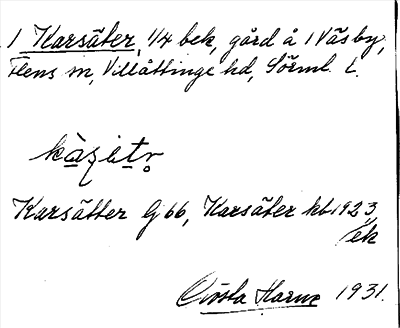 1 Karsäter, 1/4 bek, gård å 1 Väsby,
Flens sn, Villåttinge hd, Sörml. l.
Karsätter G 66, Karsäter kb 1923,
/ek
Gösta 1931.